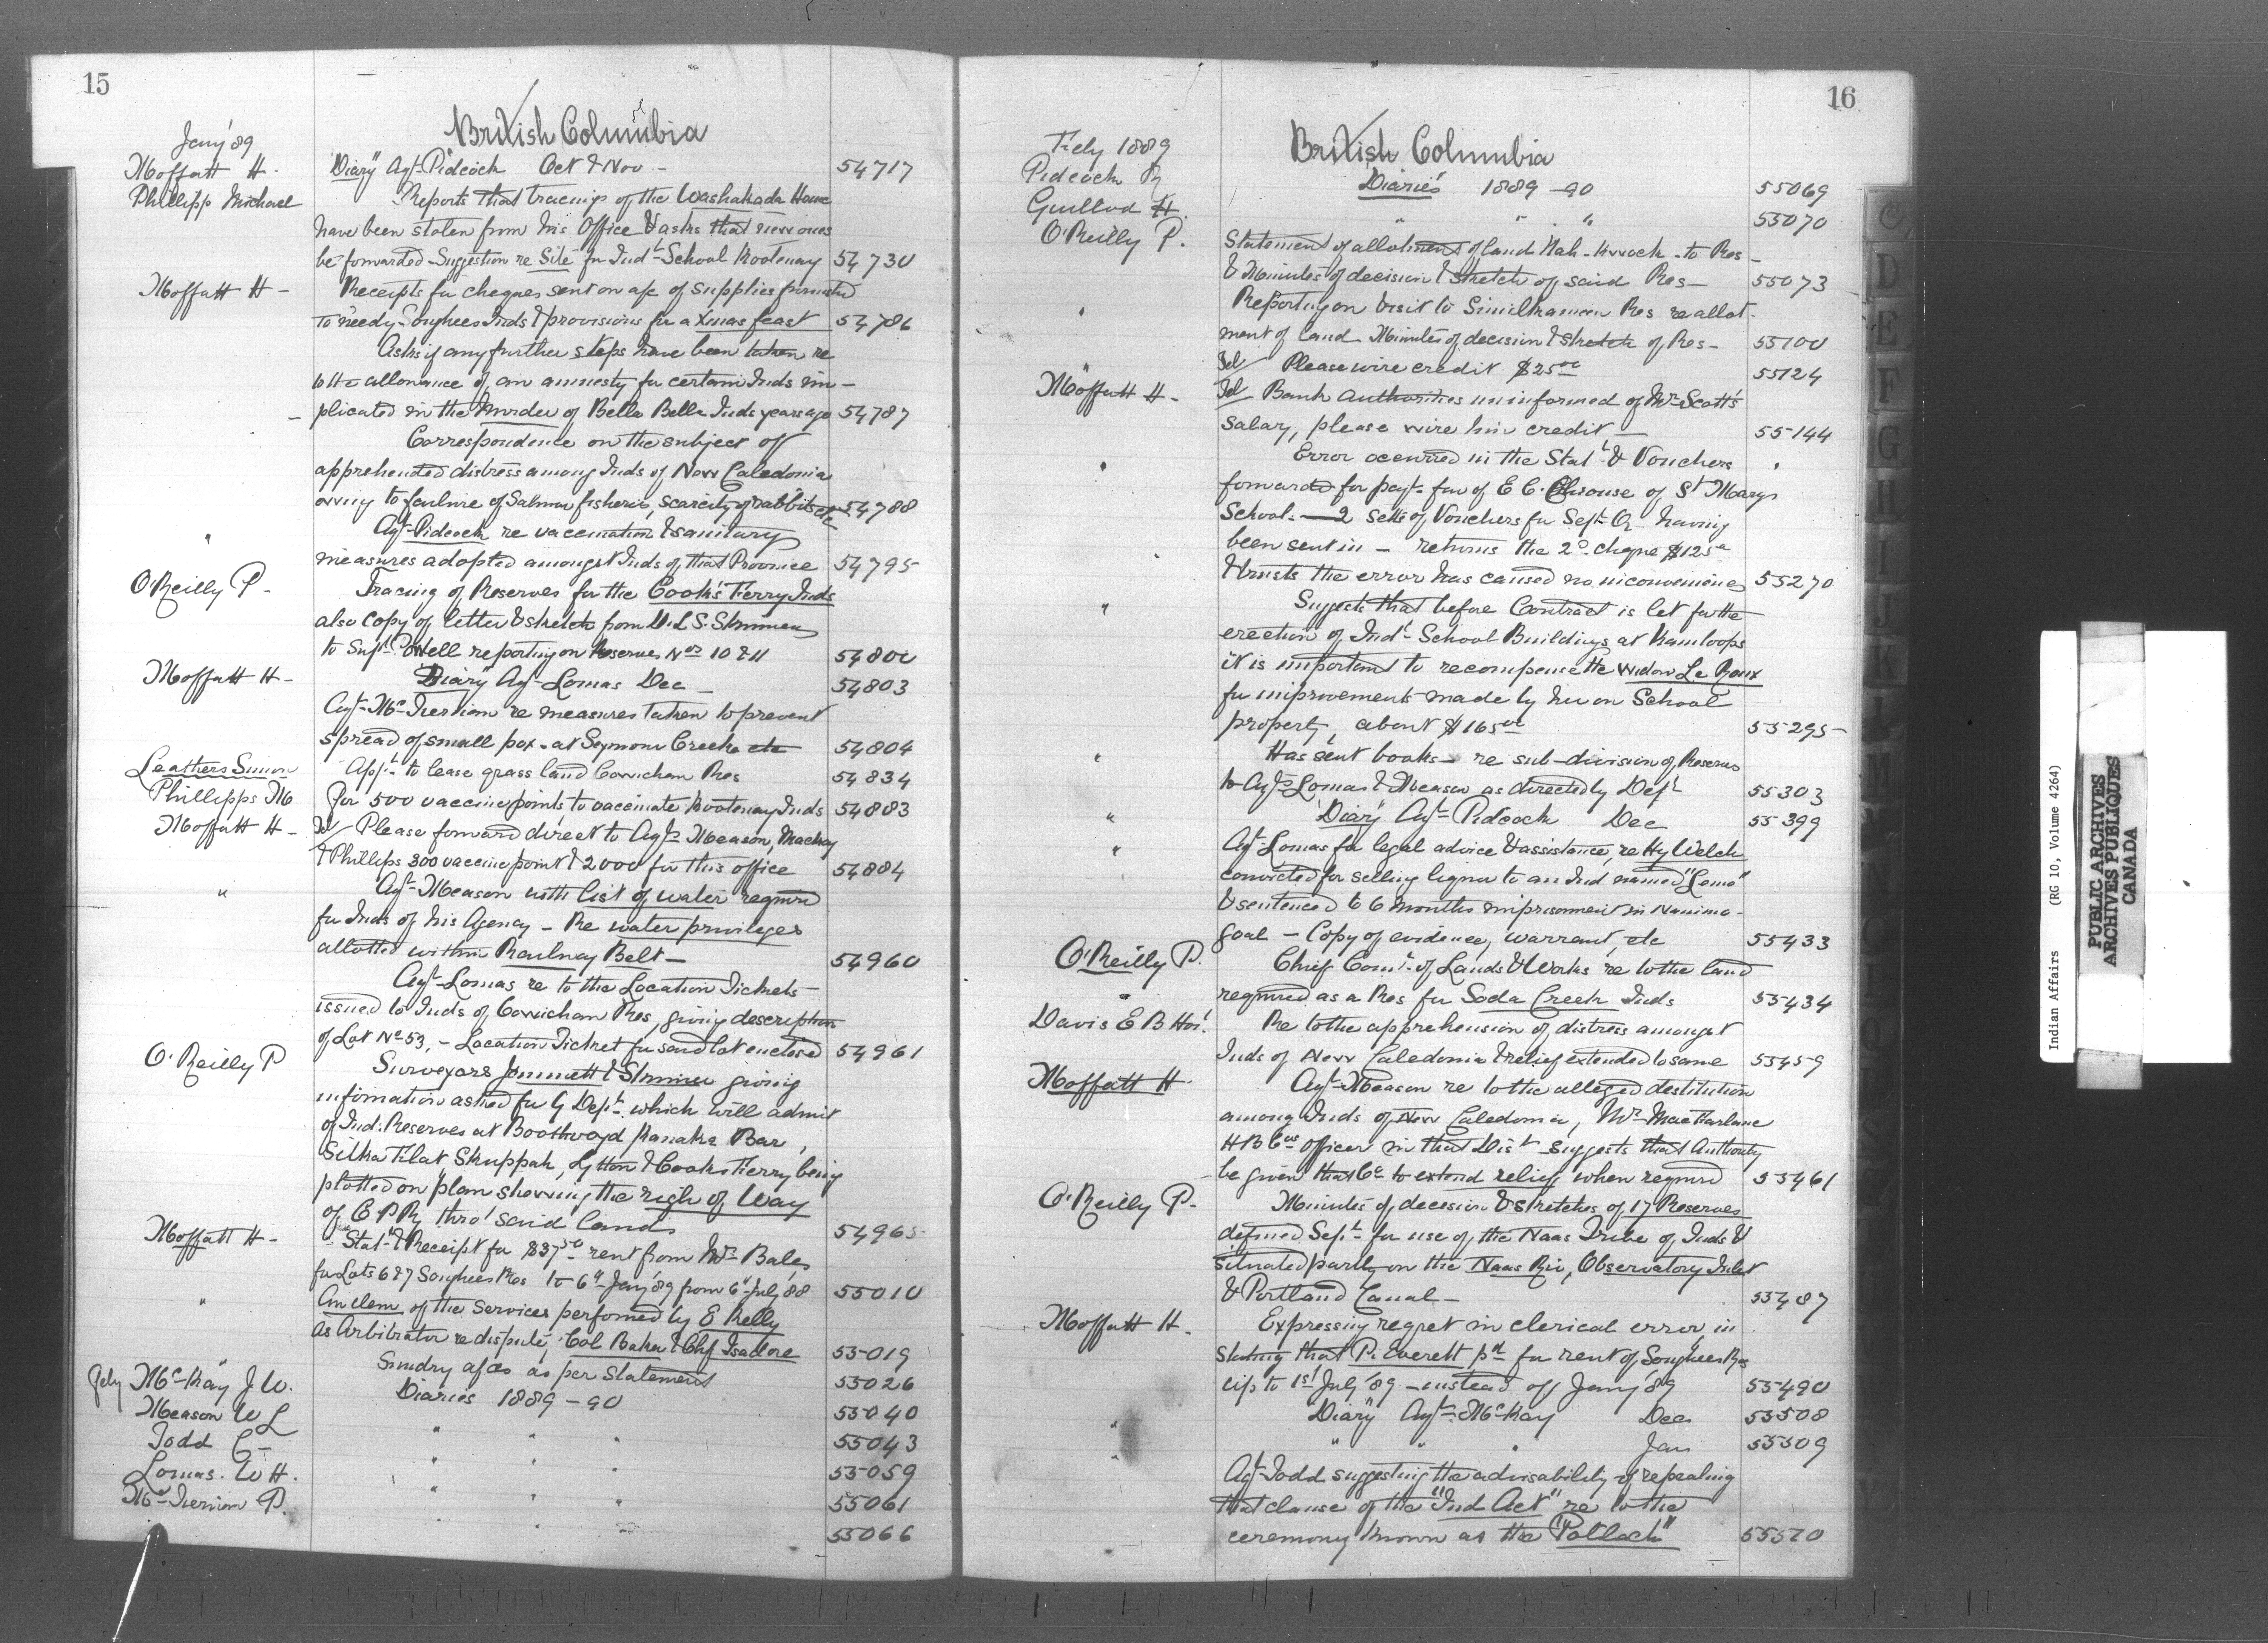 15
British Columbia
Jany '89
Moffatt H. "Diary" Agt. Pidcock Oct & Nov - 54717
Phillipps Michael Reports that tracings of the Washakada Home
have been stolen from his Office & asks that new ones
be forwarded - Suggestion re Site for Indt. School Kootenay 54730
Moffatt H - Receipts for cheques sent on a/c of supplies furnished
to needy Songhees Inds & provisions for a Xmas feast 54786
Asks if any further steps have been taken re
to the allowance of an amnesty for certain Inds im-
- plicated in the Murder of Bella Bella Inds years ago 54787
Correspondence on the subject of
apprehended distress among Inds of New Caledonia
owing to failure of Salmon fisheries, scarcity of rabbits etc 54788
" Agt. Pidcock re vaccination & sanitary
measures adopted amongst Inds of that Province 54795
O'Reilly P - Tracing of Reserves for the Cook's Ferry Inds
also copy of letter & sketch from D.L.S. Skinner
to Supt. Powell reporting on Reserves Nos 10 & 11 54800
Moffatt H - "Diary" Agt. Lomas Dec - 54803
Agt. McTiernan re measures taken to prevent
spread of small pox at Seymour Creek etc 54804
Leathers Simon Appn. to lease grass land Cowichan Res 54834
Phillipps M For 500 vaccine points to vaccinate Kootenay Inds 54883
Moffatt H - Tel Please forward direct to Agts Meason, Mackay
& Phillips 300 vaccine point & 2000 for this office 54884
" Agt. Meason with list of water required
for Inds of his Agency - Re water privileges
allotted within Railway Belt - 54960
Agt. Lomas re to the Location Tickets
issued to Inds of Cowichan Res, giving description
of Lot No 53, - Location Ticket for said lot enclosed 54961
O'Reilly P Surveyors Jemmett & Skinner giving
information asked for by Dept. which will admit
of Ind. Reserves at Boothroyd Kanaka Bar,
Silka Flat Skuppah, Lytton & Cooks Ferry being
plotted on plan shewing the righ of Way
of C P Ry thro' said lands 54965
Moffatt H - Stat. & Receipt for $37.50 rent from Mr. Bales
for Lots 6 & 7 Songhees Res to 6th Jany '89 from 6th July '88 55010
" An clem of the Services performed by E Kelly
as Arbitrator re dispute, Col Baker & Chf Isadore 55019
" Sundry a/cs as per Statement 55026
Feby McKay J W. Diaries 1889 - 90 55040
Meason W L " " " 55043
Todd C - " " " 55059
Lomas. W H. " " " 55061
McTiernan P. " " " 55066
16
British Columbia
Feby 1889
Pidcock R Diaries 1889 - 90 55069
Guillod H. " " " 55070
O'Reilly P. Statement of allotment of land - to Res -
& Minutes of decision & sketch of said Res - 55073
" Reporting on visit to Similkameen Res re allot-
ment of land - Minutes of decision & sketch of Res - 55100
" Tel Please wire credit $2500 55124
Moffatt H - Tel Bank Authorities uninformed of Mr. Scott's
Salary, please wire him credit - 55144
" Error occurred in the Stat. & Vouchers
forwarded for payt. fav of E C. Chirouse of St Mary's
School. - 2 Setts of Vouchers for Sept. Qr. having
been sent in - returns the 2o. cheque $125
& trusts the error has caused no inconvenience 55270
" Suggests that before Contract is let for the
erection of Indl. School Buildings at Kamloops
it is important to recompense the widow Le Roux
for improvements made by her on School
property, about $16500 55295
" Has sent books - re sub-division of Reserves
to Agts Lomas & Meason as directed by Dept. 55303
" "Diary" Agt. Pidcock Dec 55399
" Agt. Lomas for legal advice & assistance, re Hy Welch
convicted for selling liquor to an Ind named "Lemo"
& sentenced to 6 Months imprisonment in Nanimo -
goal - Copy of evidence, warrant, etc 55433
O'Reilly P. Chief Comr. of Lands & Works re to the land
required as a Res for Soda Creek Inds 55434
Davis E B Hon. Re to the apprehension of distress amongst
Inds of New Caledonia & relief extended to same 55459
Moffatt H. Agt. Meason re to the alleged destitution
among Inds of New Caledonia, Mr. MacFarlane
H B Cos Officer in that Dist. Suggests that Authority
be given that Co to extend relief when required 55461
O'Reilly P - Minutes of decision & Sketches of 17 Reserves
defined Sept. for use of the Naas Tribe of Inds &
situated partly on the Naas Riv, Observatory Inlet
& Portland Canal - 55487
Moffatt H. Expressing regret in clerical error, in
stating that P. Everett pd for rent of Songhees Res
up to 1st July '89 - instead of Jany '89 55490
" "Diary" Agt. McKay Dec 55508
" " " " Jan 55509
Agt. Todd suggesting the advisability of repealing
that clause of the "Ind Act" re to the
ceremony known as the "Potlach" 55520
C
D
E
F
G
H
I
J
K
L
M
Indian Affairs (RG 10, Volume 4264)
PUBLIC ARCHIVES
ARCHIVES PUBLIQUES
CANADA